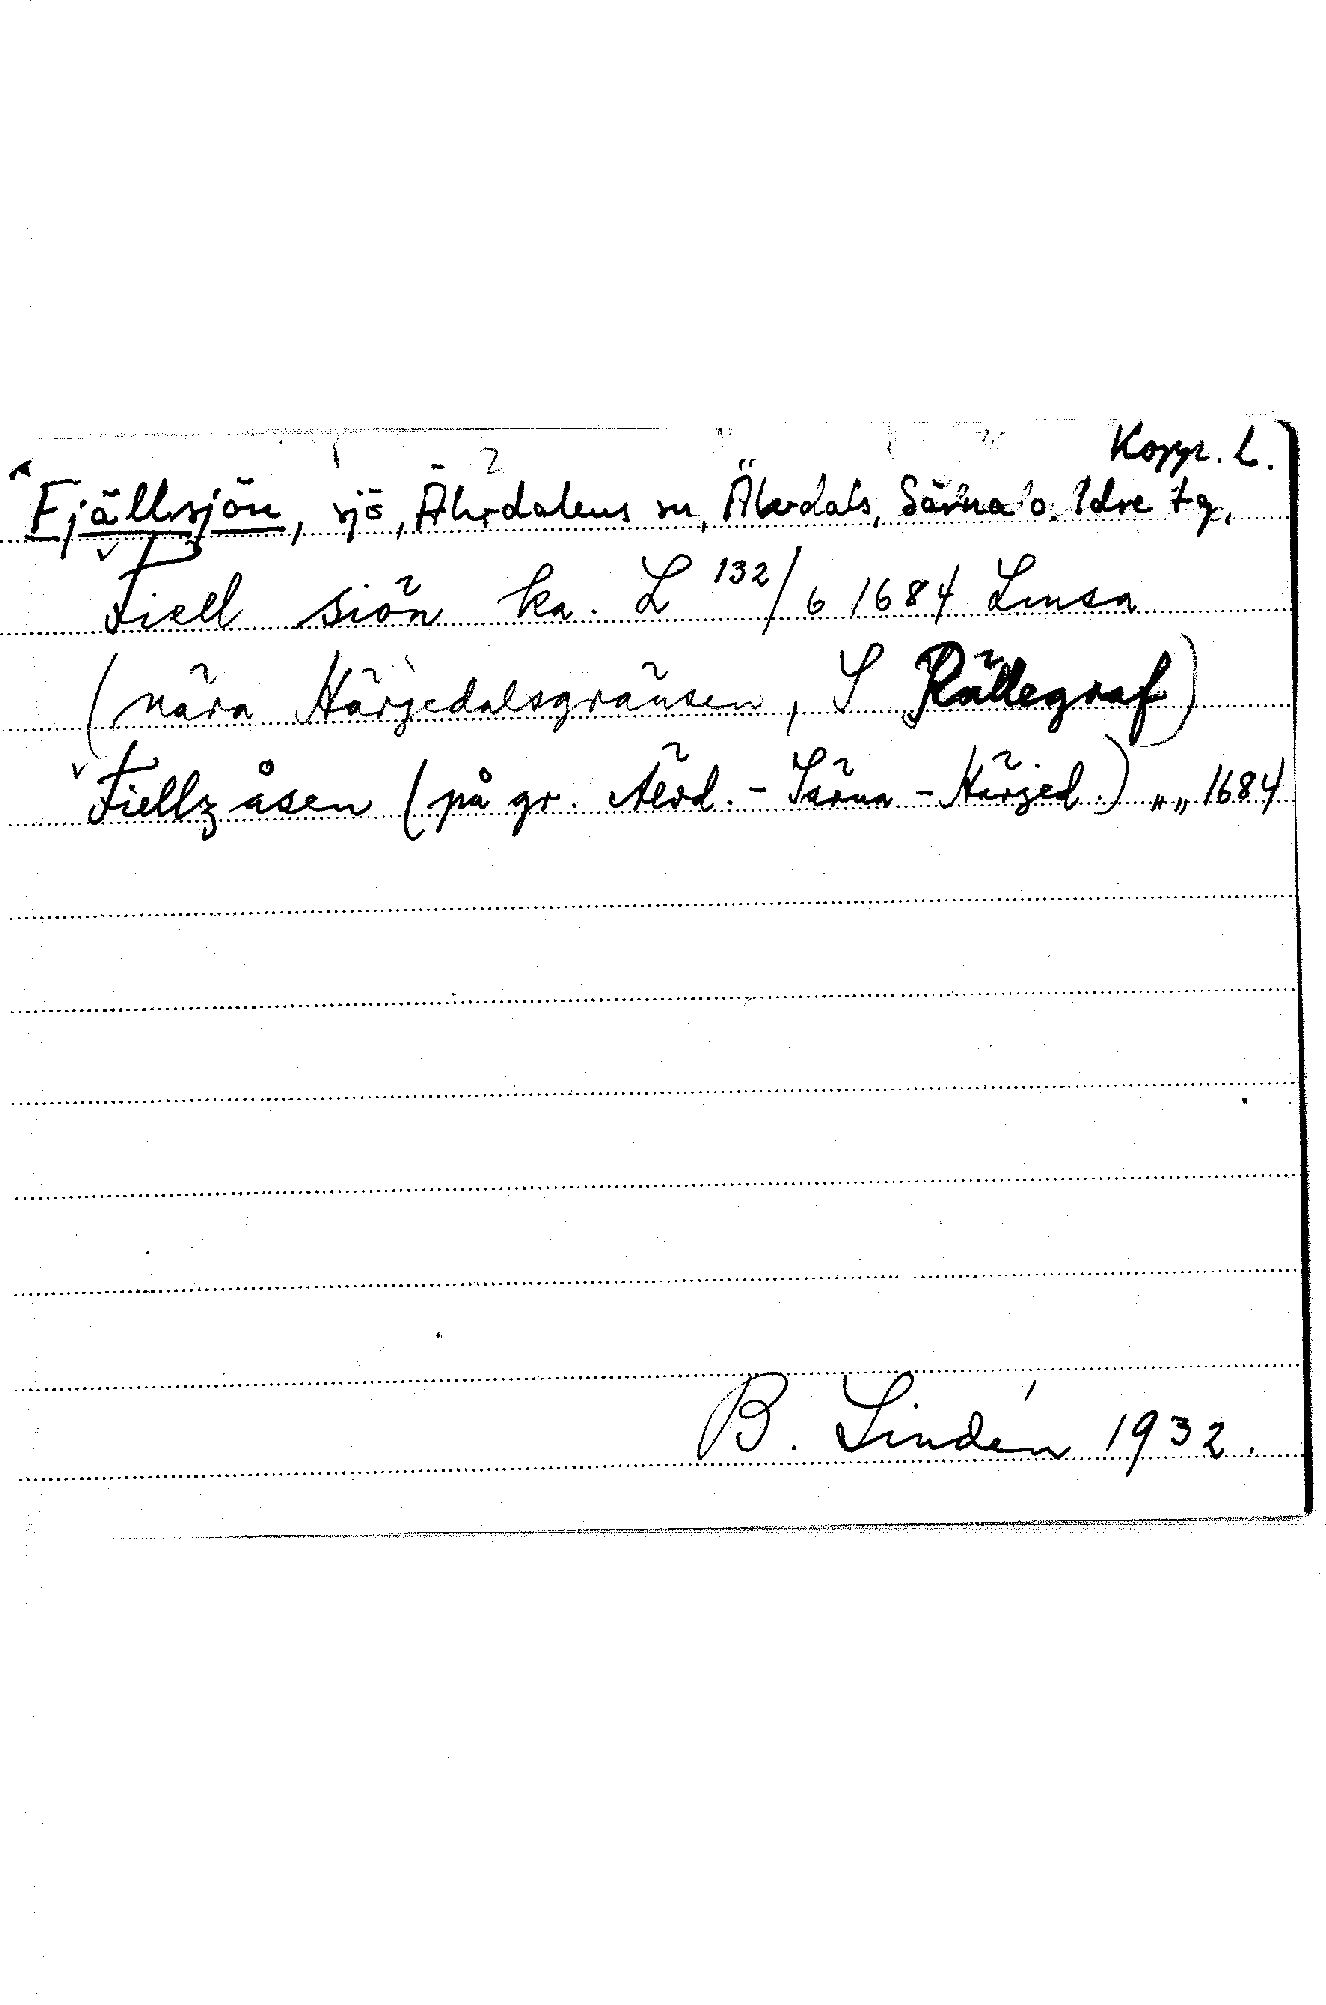 Kopp. L.
Fjällsjön, sjö, Älvdalens sn, Älvdals, Särna o. Idre tg.
Fiell siön ka. L 132/6 1684 Linsa
(nära Härjedalsgränsen, S Rällegraf)
Fiellz åsen (på gr. Älvd. - Särna - Härjed.) „ „ 1684
B. Lindén 1932.